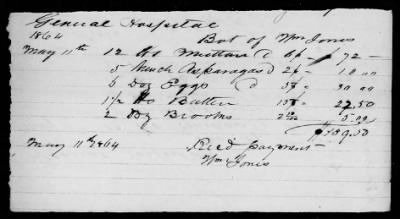 General Hospital
1864 Bot of Wm Jones
May 11th 12 lbs Mutton @ 6/- 72 -
5 Bunch Asparagus @ 2/- 10 00
6 Doz Eggs @ 5/- 30 00
1 1/2 lbs Butter 15/- 22.50
2 Doz Brooms 5.00
$139.50
May 11th 1864 Recd payment
Wm Jones